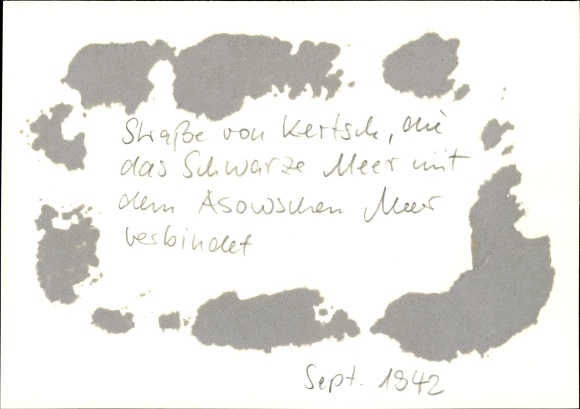 Straße von Kertsch, die
das Schwarze Meer mit
dem Asowschen Meer
verbindet
Sept. 1942